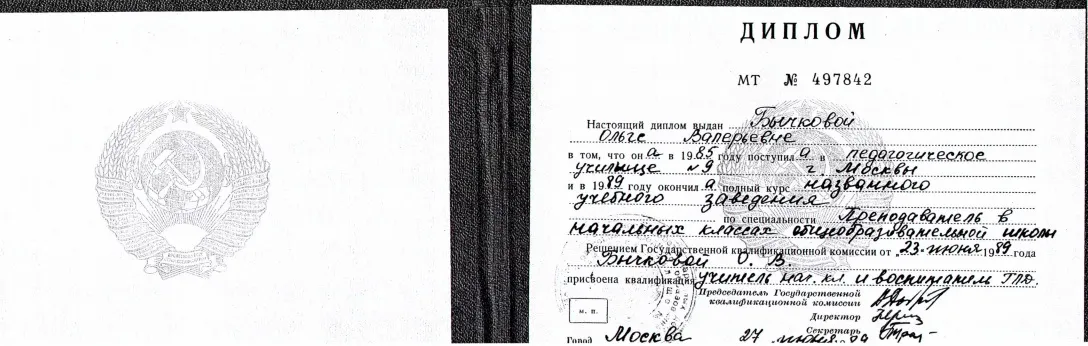 ДИПЛОМ
МТ № 497842
Настоящий диплом выдан Бычковой
Ольге Валерьевне
в том, что она в 1985 году поступила в педагогическое
училище №9 г. Москвы
и в 1989 году окончила полный курс названного
учебного заведения
по специальности Преподаватель в
начальных классах общеобразовательной школы
Решением Государственной квалификационной комиссии от „23“ июня 1989 года
Бычковой О. В.
присвоена квалификация учитель нач. кл. и воспитатель ГПД.
Председатель Государственной
квалификационной комиссии
Директор
Секретарь
м. п.
Город Москва 27 июня